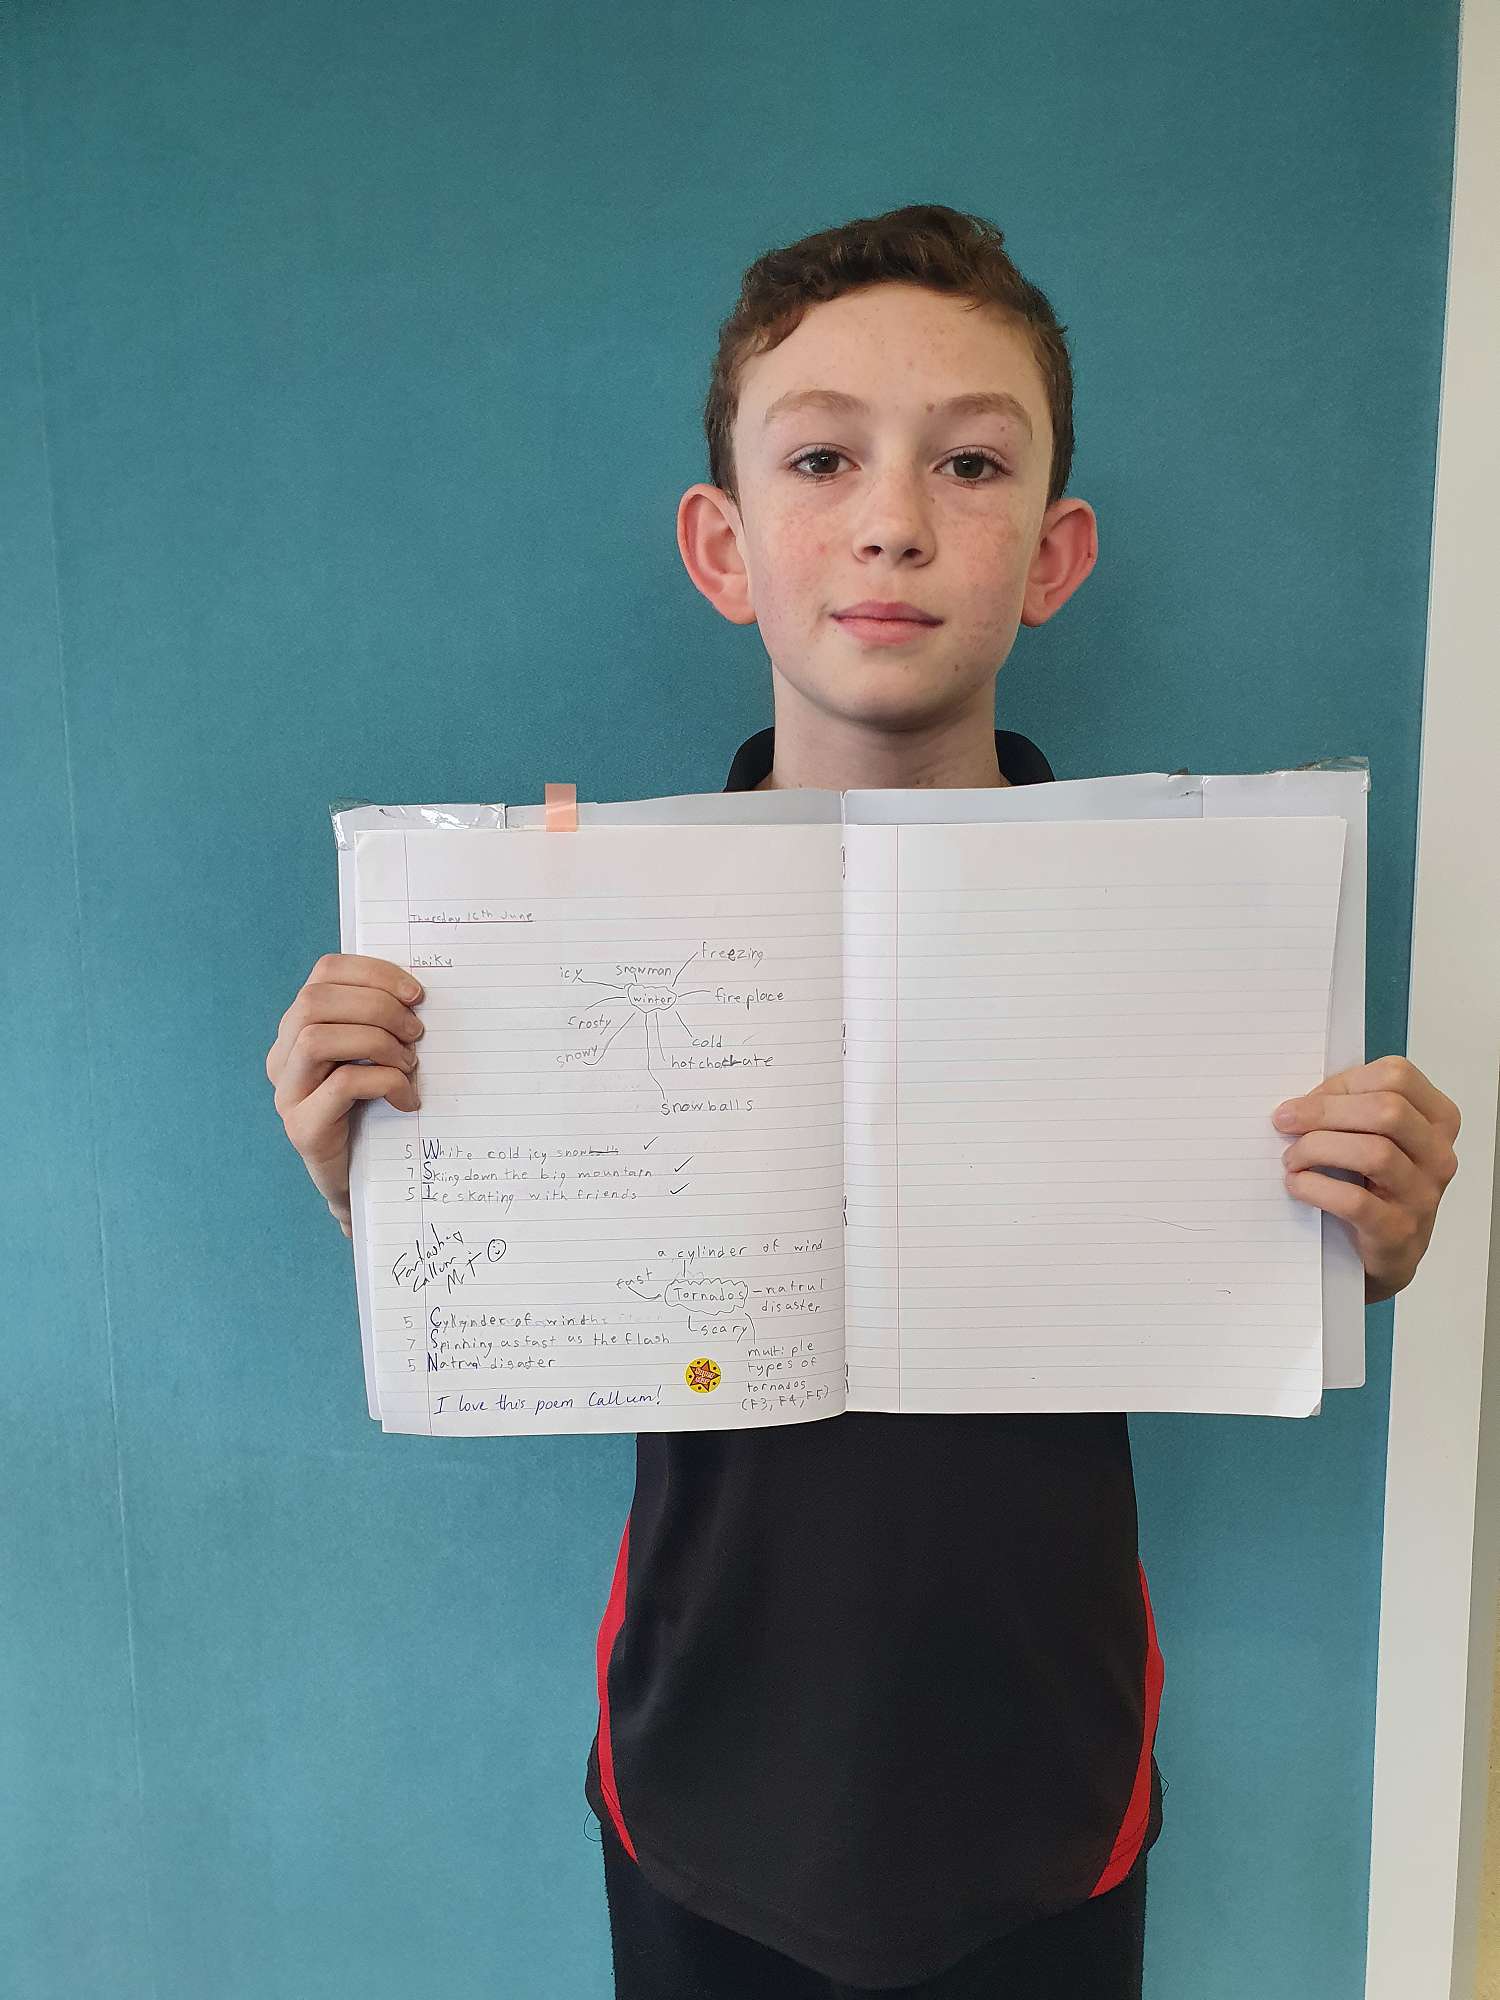 Thursday 16th June
Haiku
freezing
icy
snowman
winter
fireplace
frosty
cold
snowy
hot chocolate
snowballs
5 White cold icy snow
7 Skiing down the big mountain
5 Ice skating with friends
Fantastic
Callum
a cylinder of wind
fast
Tornados
natrul
disaster
scary
multiple
types of
tornados
(F3, F4, F5)
5 of wind
7 Spinning as fast as the flash
5 disaster
I love this poem Callum!